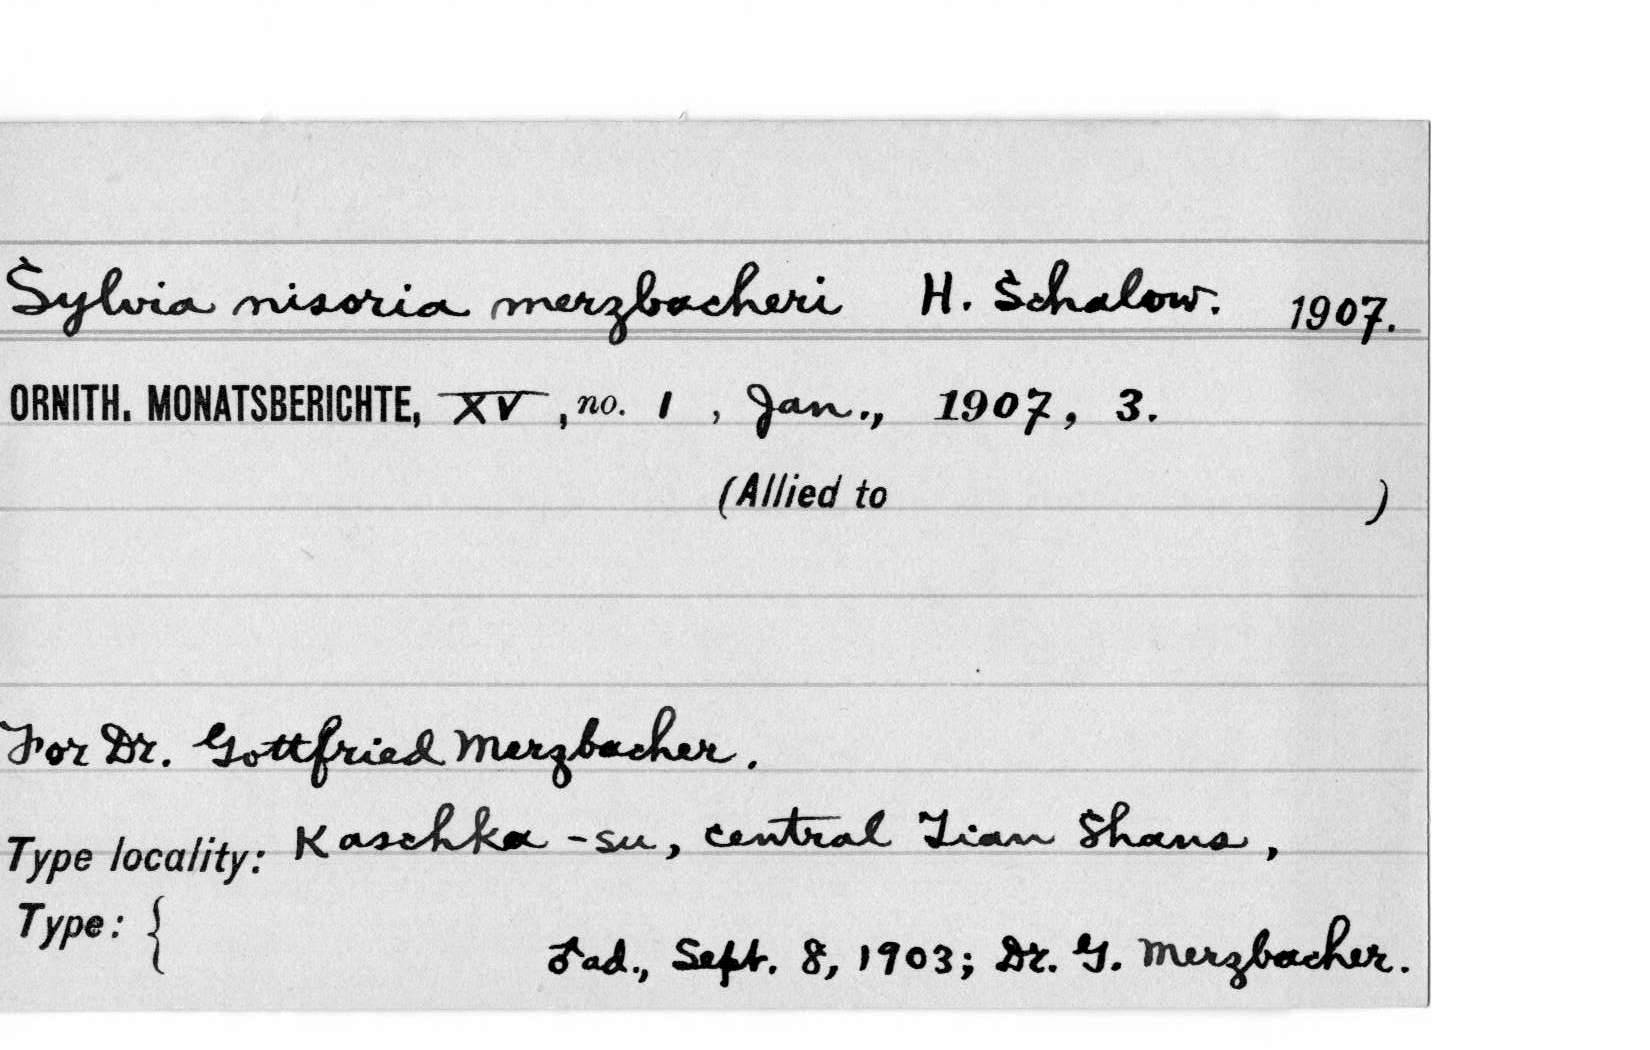 Sylvia nisoria merzbacheri H. Schalow. 1907.
ORNITH. MONATSBERICHTE, XV, no. 1, Jan., 1907, 3.
(Allied to )
For Dr. Gottfried Merzbacher.
Type locality: Kaschka-su, central Tian Shans,
Type: {
♂ ad., Sept. 8, 1903; Dr. G. Merzbacher.